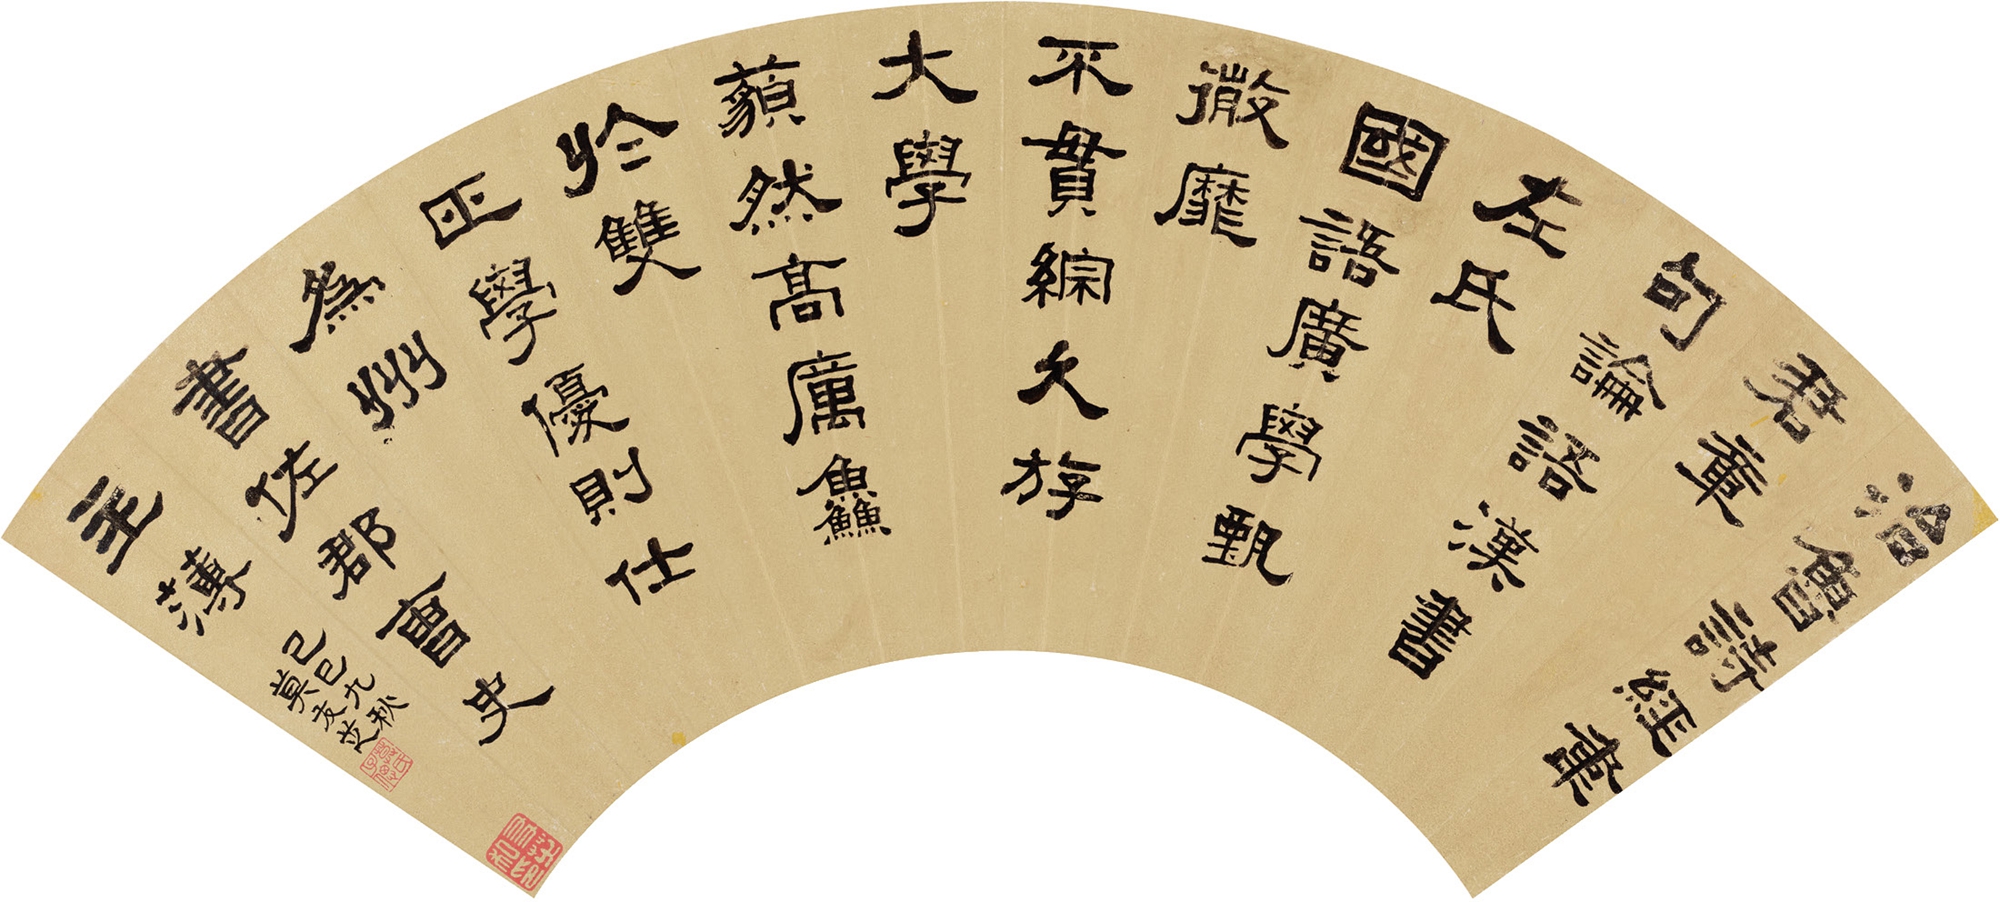 治魯詩經韋
君章
句論語漢書
左氏
國語廣學甄
微靡
不貫綜久斿
大學
藐然高厲鱻
於雙
匹學優則仕
為州
書佐郡曹史
主薄
己巳九秋
莫友芝